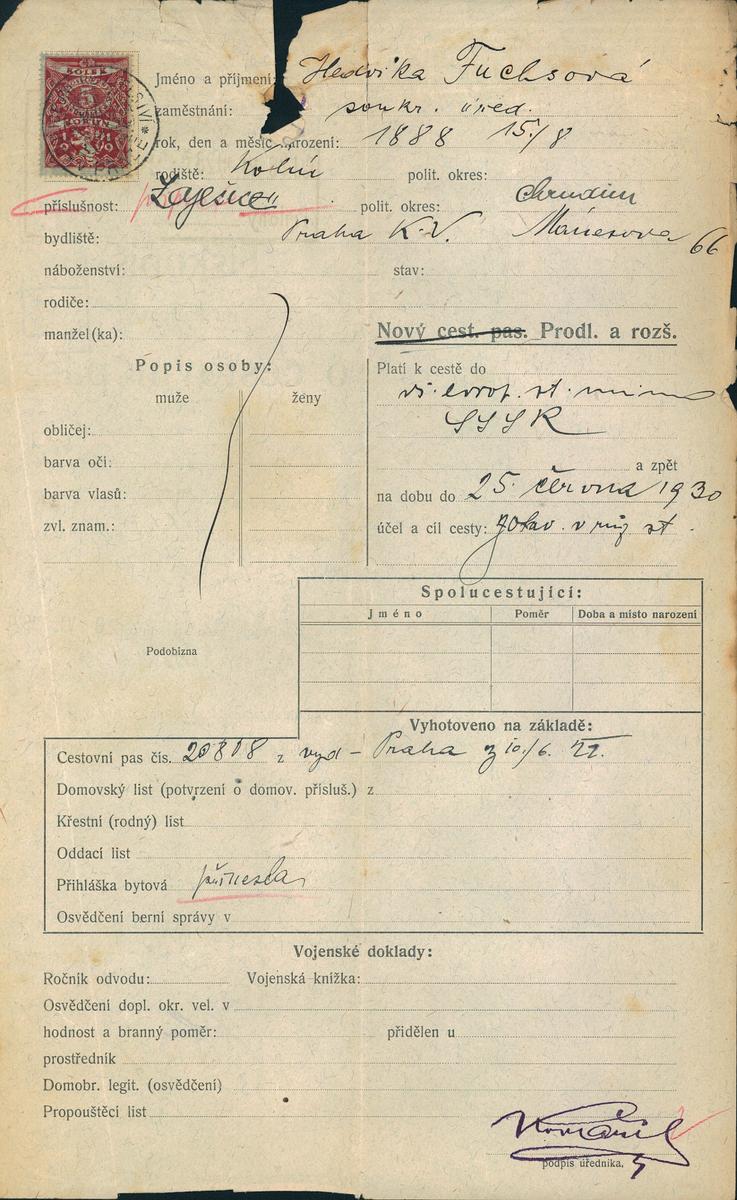 KOLEK
5
Jméno a příjmení: Hedvika Fuchsová
zaměstnání: soukr. úřed.
rok, den a měsíc narození: 1888 15/8
rodiště: Kolín polit. okres:
příslušnost: polit. okres: Chrudim
bydliště: Praha K.V. Mánesova 66
náboženství: stav:
rodiče:
manžel(ka):
Nový cest. pas. Prodl. a rozš.
Popis osoby:
muže ženy
obličej:
barva očí:
barva vlasů:
zvl. znam.:
Platí k cestě do
vš. evrop. st. mimo
SSSR
a zpět
na dobu do 25. června 1930
účel a cíl cesty: st.
Spolucestující:
Jméno Poměr Doba a místo narození
Podobizna
Vyhotoveno na základě:
Cestovní pas čís. 20808 z vyd – Praha z 10/6.
Domovský list (potvrzení o domov. přísluš.) z
Křestní (rodný) list
Oddací list
Přihláška bytová přinesla
Osvědčení berní správy v
Vojenské doklady:
Ročník odvodu: Vojenská knížka:
Osvědčení dopl. okr. vel. v
hodnost a branný poměr: přidělen u
prostředník
Domobr. legit. (osvědčení)
Propouštěcí list
podpis úředníka.